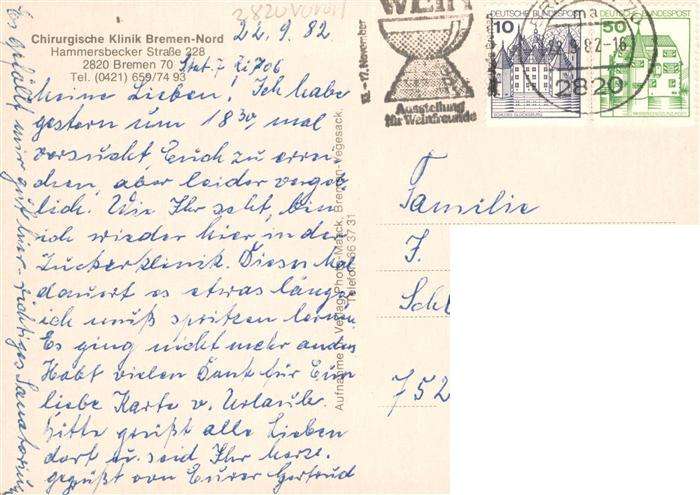 2820 Vorort
Chirurgische Klinik Bremen-Nord
Hammersbecker Straße 228
2820 Bremen 70
Tel. (0421) 659/74 93
22.9.82.
Stat. 7 Zi 706
Meine Lieben! Ich habe
gestern um 18 30, mal
versucht, Euch zu errei
chen, aber leider vergeb
lich. Wie Ihr seht, bin
ich wieder hier in der
Zuckerklinik. Diesen Mal
dauert es etwas länger
ich muß spritzen lernen
Es ging nicht mehr anders
Habt vielen Dank für Eure
liebe Karte v. Urlaub.
Bitte grüßt alle Lieben
dort u. seid Ihr herzl.
gegrüßt von Eurer Gertrud
Es gefällt mir gut hier - richtiges Sanatorium
Aufnahme u. Verlag Photo-Maack, Bremen-Vegesack,
Telefon 66 37 31
WEIN
12. November
Ausstellung
für Weinfreunde
DEUTSCHE BUNDESPOST
10
SCHLOSS GLÜCKSBURG
DEUTSCHE BUNDESPOST
50
ma
22.9.82-16
2820
Familie
J.
Schl
752